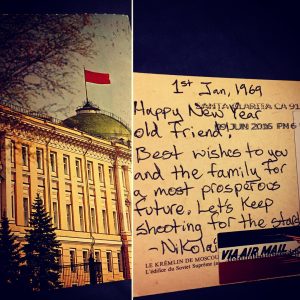 1st Jan, 1969
SANTA CLARITA CA 91
Happy New Year
09 JUN 2016 PM 6
old Friend,
Best wishes to you
and the family for
a most prosperous
future. Let's Keep
shooting for the stars
-Nikolai
VIA AIR MAIL
LE KREMLIN DE MOSCOU
L'édifice du Soviet Suprême